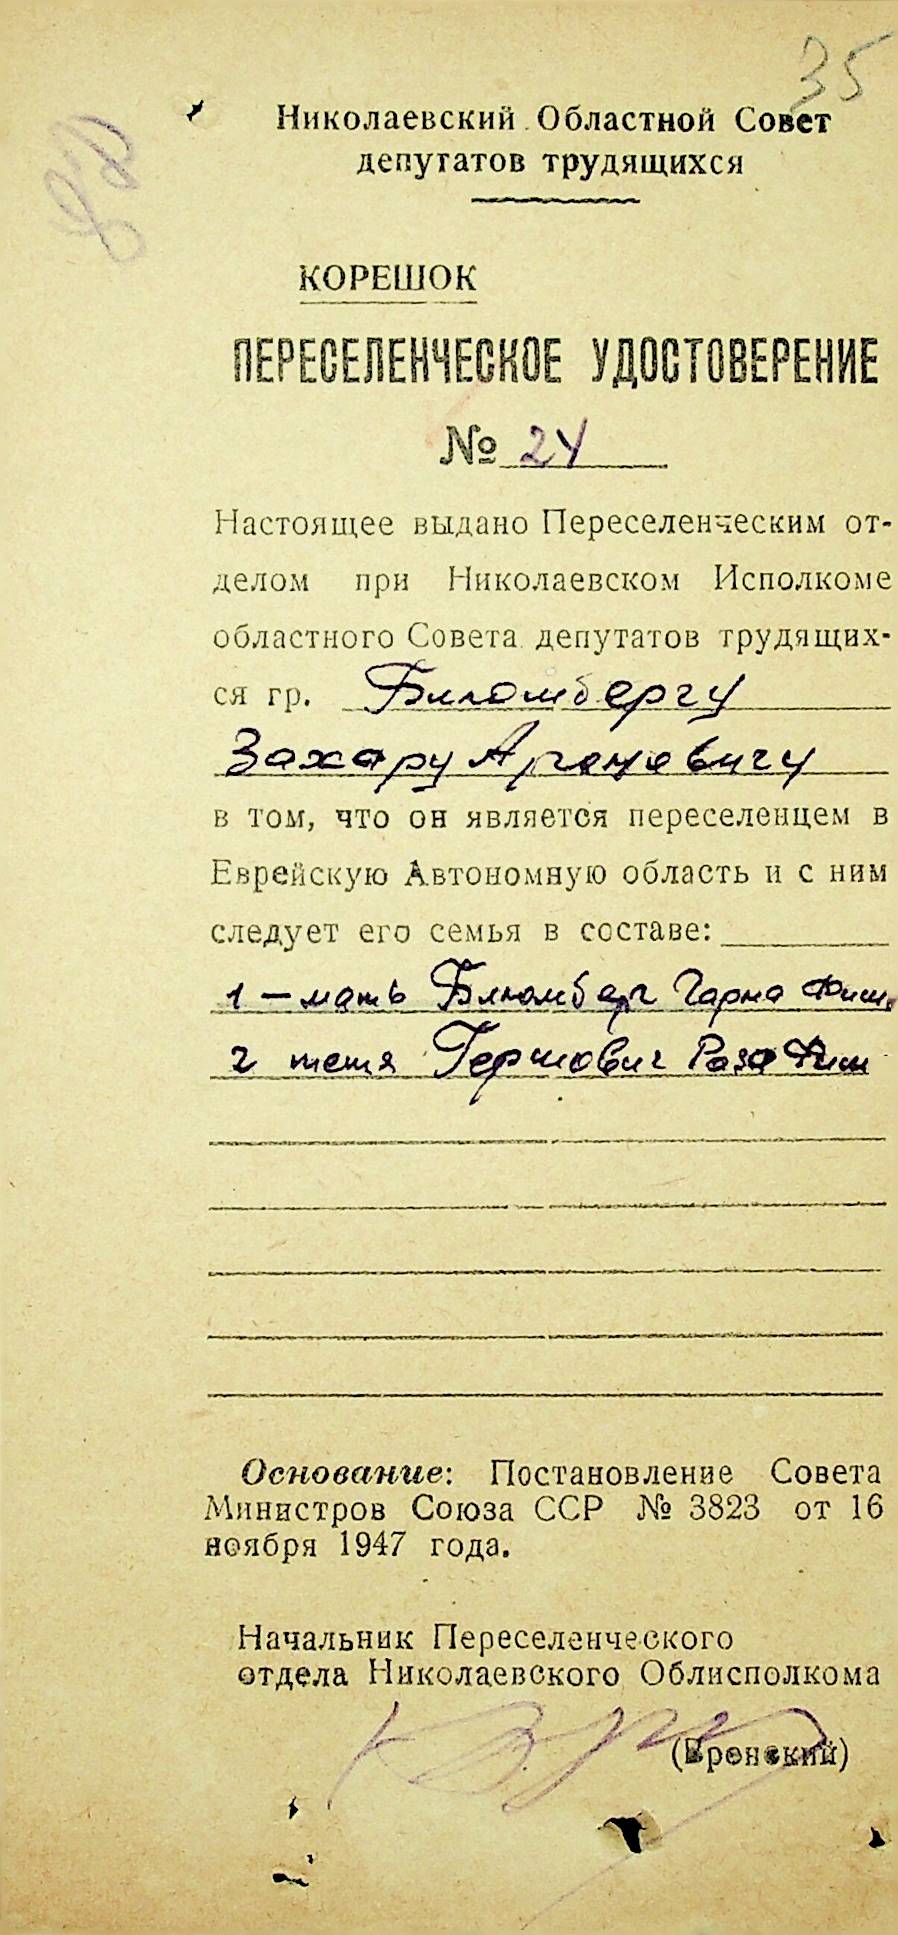 35
Николаевский Областной Совет
депутатов трудящихся
КОРЕШОК
ПЕРЕСЕЛЕНЧЕСКОЕ УДОСТОВЕРЕНИЕ
№ 24
Настоящее выдано Переселенческим от-
делом при Николаевском Исполкоме
областного Совета депутатов трудящих-
ся гр. Блюмбергу
Захару Ароновичу
в том, что он является переселенцем в
Еврейскую Автономную область и с ним
следует его семья в составе:
1 – мать Блюмберг Фиш.
2 тетя Гершович Роза Фиш
Основание: Постановление Совета
Министров Союза ССР № 3823 от 16
ноября 1947 года.
Начальник Переселенческого
отдела Николаевского Облисполкома
(Вронский)